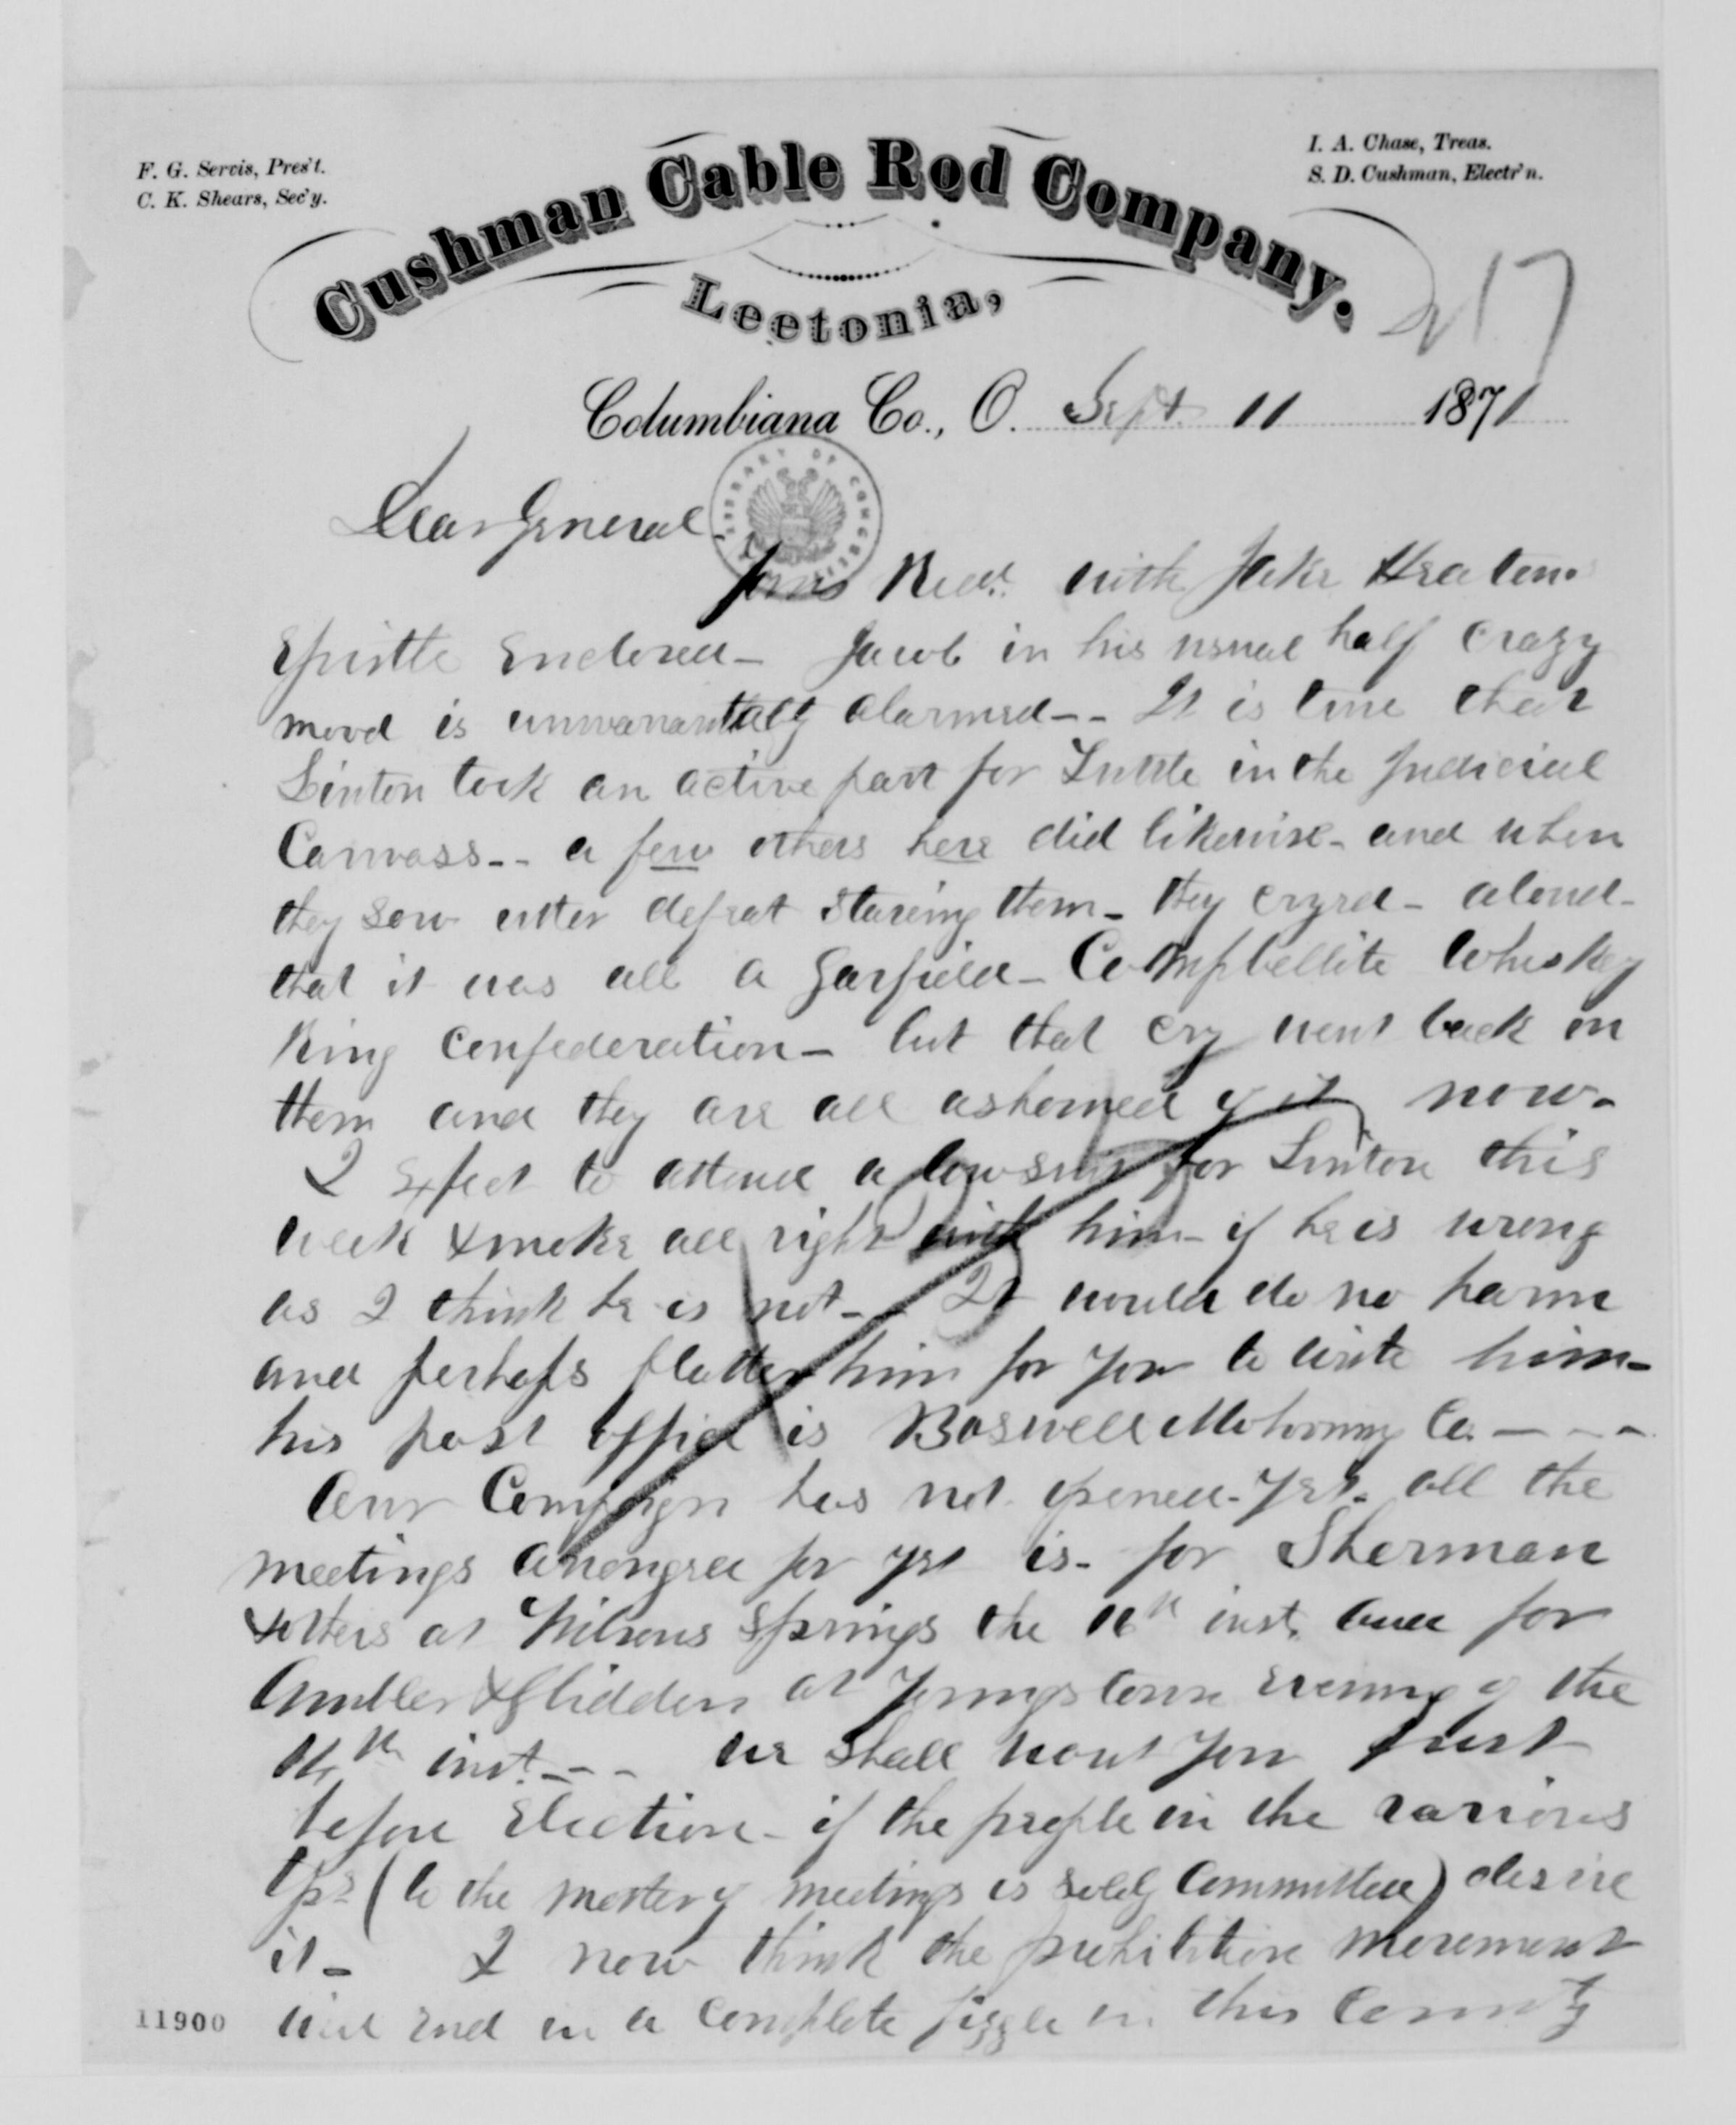 F. G. Servis, Pres't.
C. K. Shears, Sec'y.
I. A. Chase, Treas.
S. D. Cushman, Electr'n.
Cushman Cable Rod Company.
Leetonia,
Columbiana Co., O. Sept. 11 1871
Dear General
LIBRARY OF CONGRESS
Yours Recd. with Jake Heatons
Epistle Enclosed - Jacob in his usual half crazy
mood is unwarrantably alarmed - - It is true that
Linton took an active part for Tuttle in the Judicial
Canvass - - a few others here did likewise - and when
they saw utter defeat staring them - they cryed - aloud -
that it was all a Garfield - Campbellite Whiskey
Ring Confederation - but that cry went back on
them and they are all ashamed of it now -
I Expect to attend a lawsuit for Linton this
week & make all right with him - if he is wrong
as I think he is not - - It would do no harm
and perhaps flatter him for you to write him -
his post office is Boswell Mahoning Co. - - -
Our Campaign has not opened - yet - all the
meetings arranged for yet is - for Sherman
& others at Wilsons Springs the 16th inst. and for
Ambler & Glidden at Youngstown Evening of the
14th inst. - - - We shall want you just
before Election - if the people in the various
tps (to the matter of meetings is solely Committed) desire
it - I now think the prohibition movement
will End in a complete fizzle in this County
11900